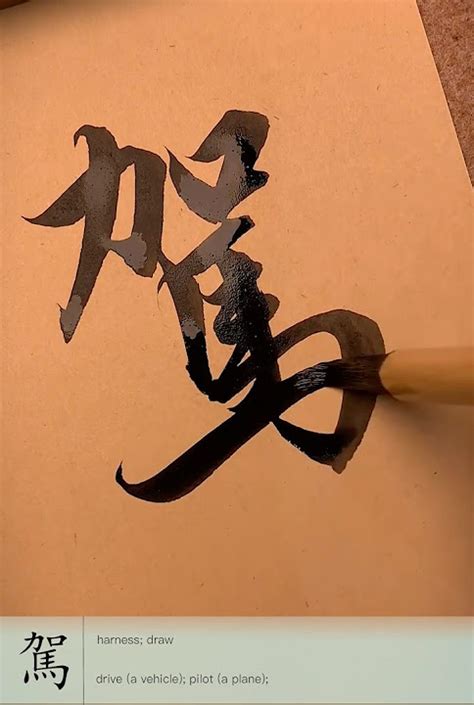 駕
駕
harness; draw
drive (a vehicle); pilot (a plane);